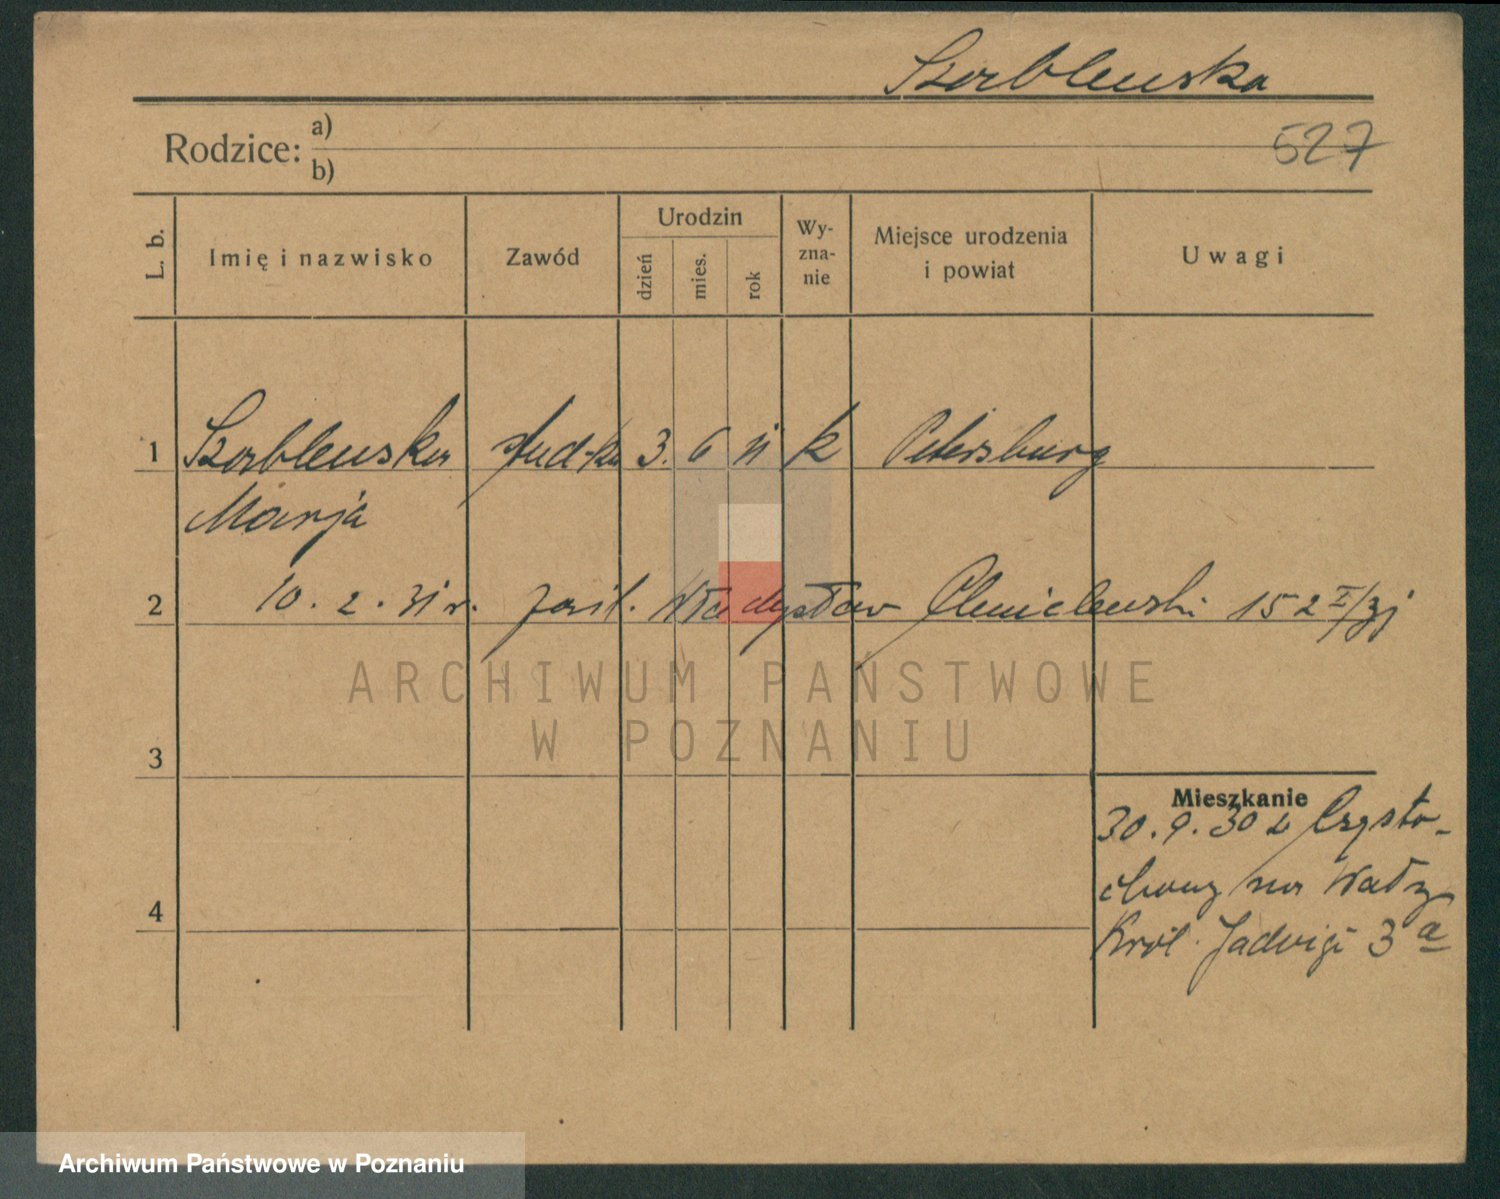 Szablewska
Rodzice:
a)
b)
527
L. b.
Imię i nazwisko
Zawód
Urodzin
dzień
mies.
rok
Wy-
zna-
nie
Miejsce urodzenia
i powiat
Uwagi
1 Szablewska stud-ka 3. 6 11 k Petersburg
Marja
2 10. 2. 31 r. Władysław 152
3
Mieszkanie
30. 9. 30 z Często-
chowy na Wały
Król. Jadwigi 3 a
4
ARCHIWUM PAŃSTWOWE
W POZNANIU
Archiwum Państwowe w Poznaniu